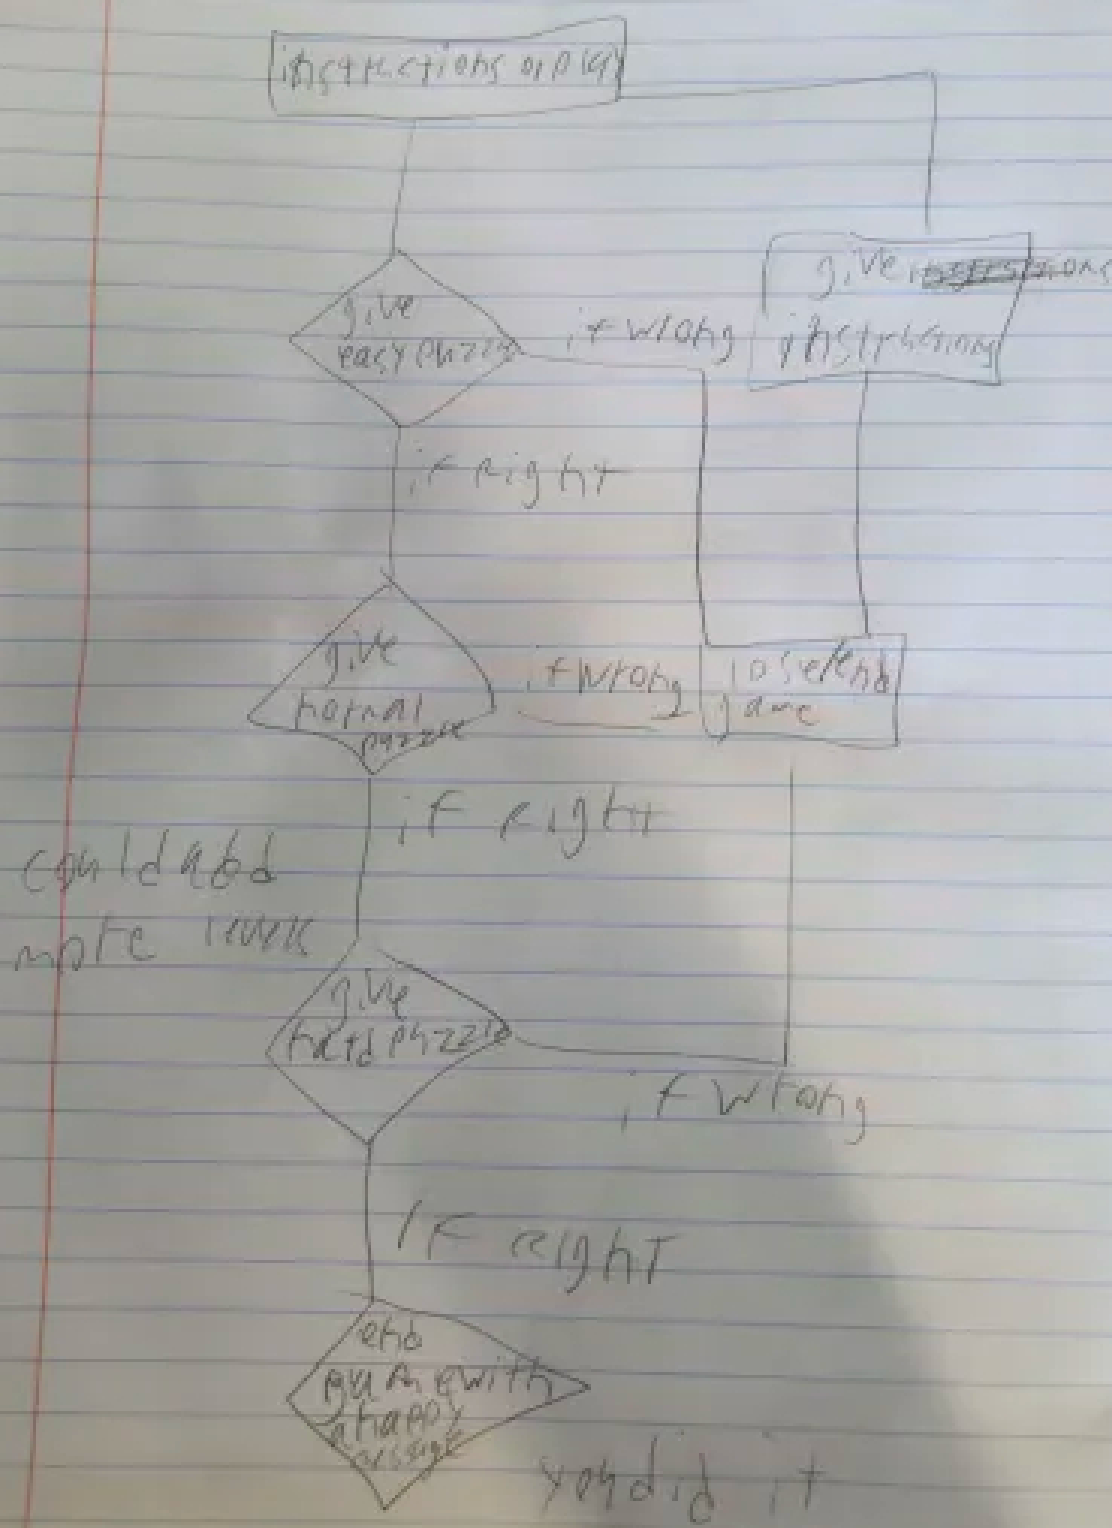 instructions or play
give
easy puzzle
if wrong
give
instructions
if right
give
normal
puzzle
if wrong
lose/end
game
if right
could add
more levels
give
hard puzzle
if wrong
if right
end
game with
a happy
you did it